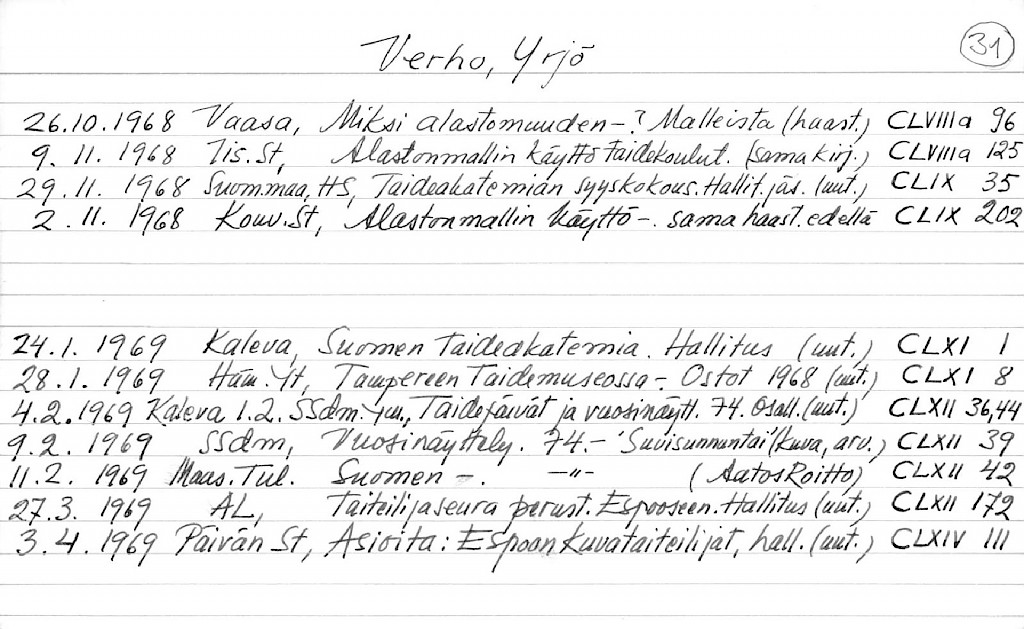 Verho, Yrjö 31
26.10.1968 Vaasa, Miksi alastomuuden-? Malleista (haast.) CLVIIIa 96
9. 11. 1968 Iis.St, Alastonmallin käyttö taidekoulut. (sama kirj.) CLVIIIa 125
29. 11. 1968 Suom.maa, HS, Taideakatemian syyskokous. Hallit.jäs. (uut.) CLIX 35
2. 11. 1968 Kouv.St, Alastonmallin käyttö-. sama haast. edellä CLIX 202
24.1. 1969 Kaleva, Suomen Taideakatemia. Hallitus (uut.) CLXI 1
28.1. 1969 Häm.Yt, Tampereen Taidemuseossa-. Ostot 1968 (uut.) CLXI 8
4.2. 1969 Kaleva 1.2. SSdm. ym., Taidepäivät ja vuosinäytt. 74. Osall. (uut.) CLXII 36,44
9.2. 1969 SSdm, Vuosinäyttely. 74.- 'Suvisunnuntai' (kuva, arv.) CLXII 39
11.2. 1969 Maas.Tul. Suomen -. -"- (Aatos Roitto) CLXII 42
27.3. 1969 AL, Taiteilijaseura perust. Espooseen. Hallitus (uut.) CLXII 172
3.4. 1969 Päivän St, Asioita: Espoon Kuvataiteilijat, hall. (uut.) CLXIV 111